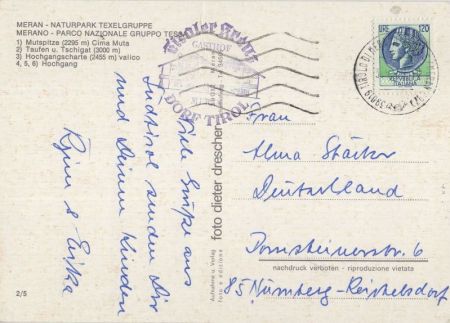 MERAN - NATURPARK TEXELGRUPPE
MERANO - PARCO NAZIONALE GRUPPO TESSA
1) Mutspitze (2295 m) Cima Muta
2) Taufen u. Tschigat (3000 m)
3) Hochgangscharte (2455 m) valico
4, 5, 6) Hochgang
Tiroler Kreuz
GASTHOF
DORF TIROL
LIRE 120
Viele Grüße aus
Südtirol senden Dir
und Deinen Kindern
& Erika
foto dieter drescher
Aufnahme u. Verlag
foto e edizione
Frau
Alma Stäcker
Deutschland
6
nachdruck verboten - riproduzione vietata
85 Nürnberg-Reichelsdorf
2/5